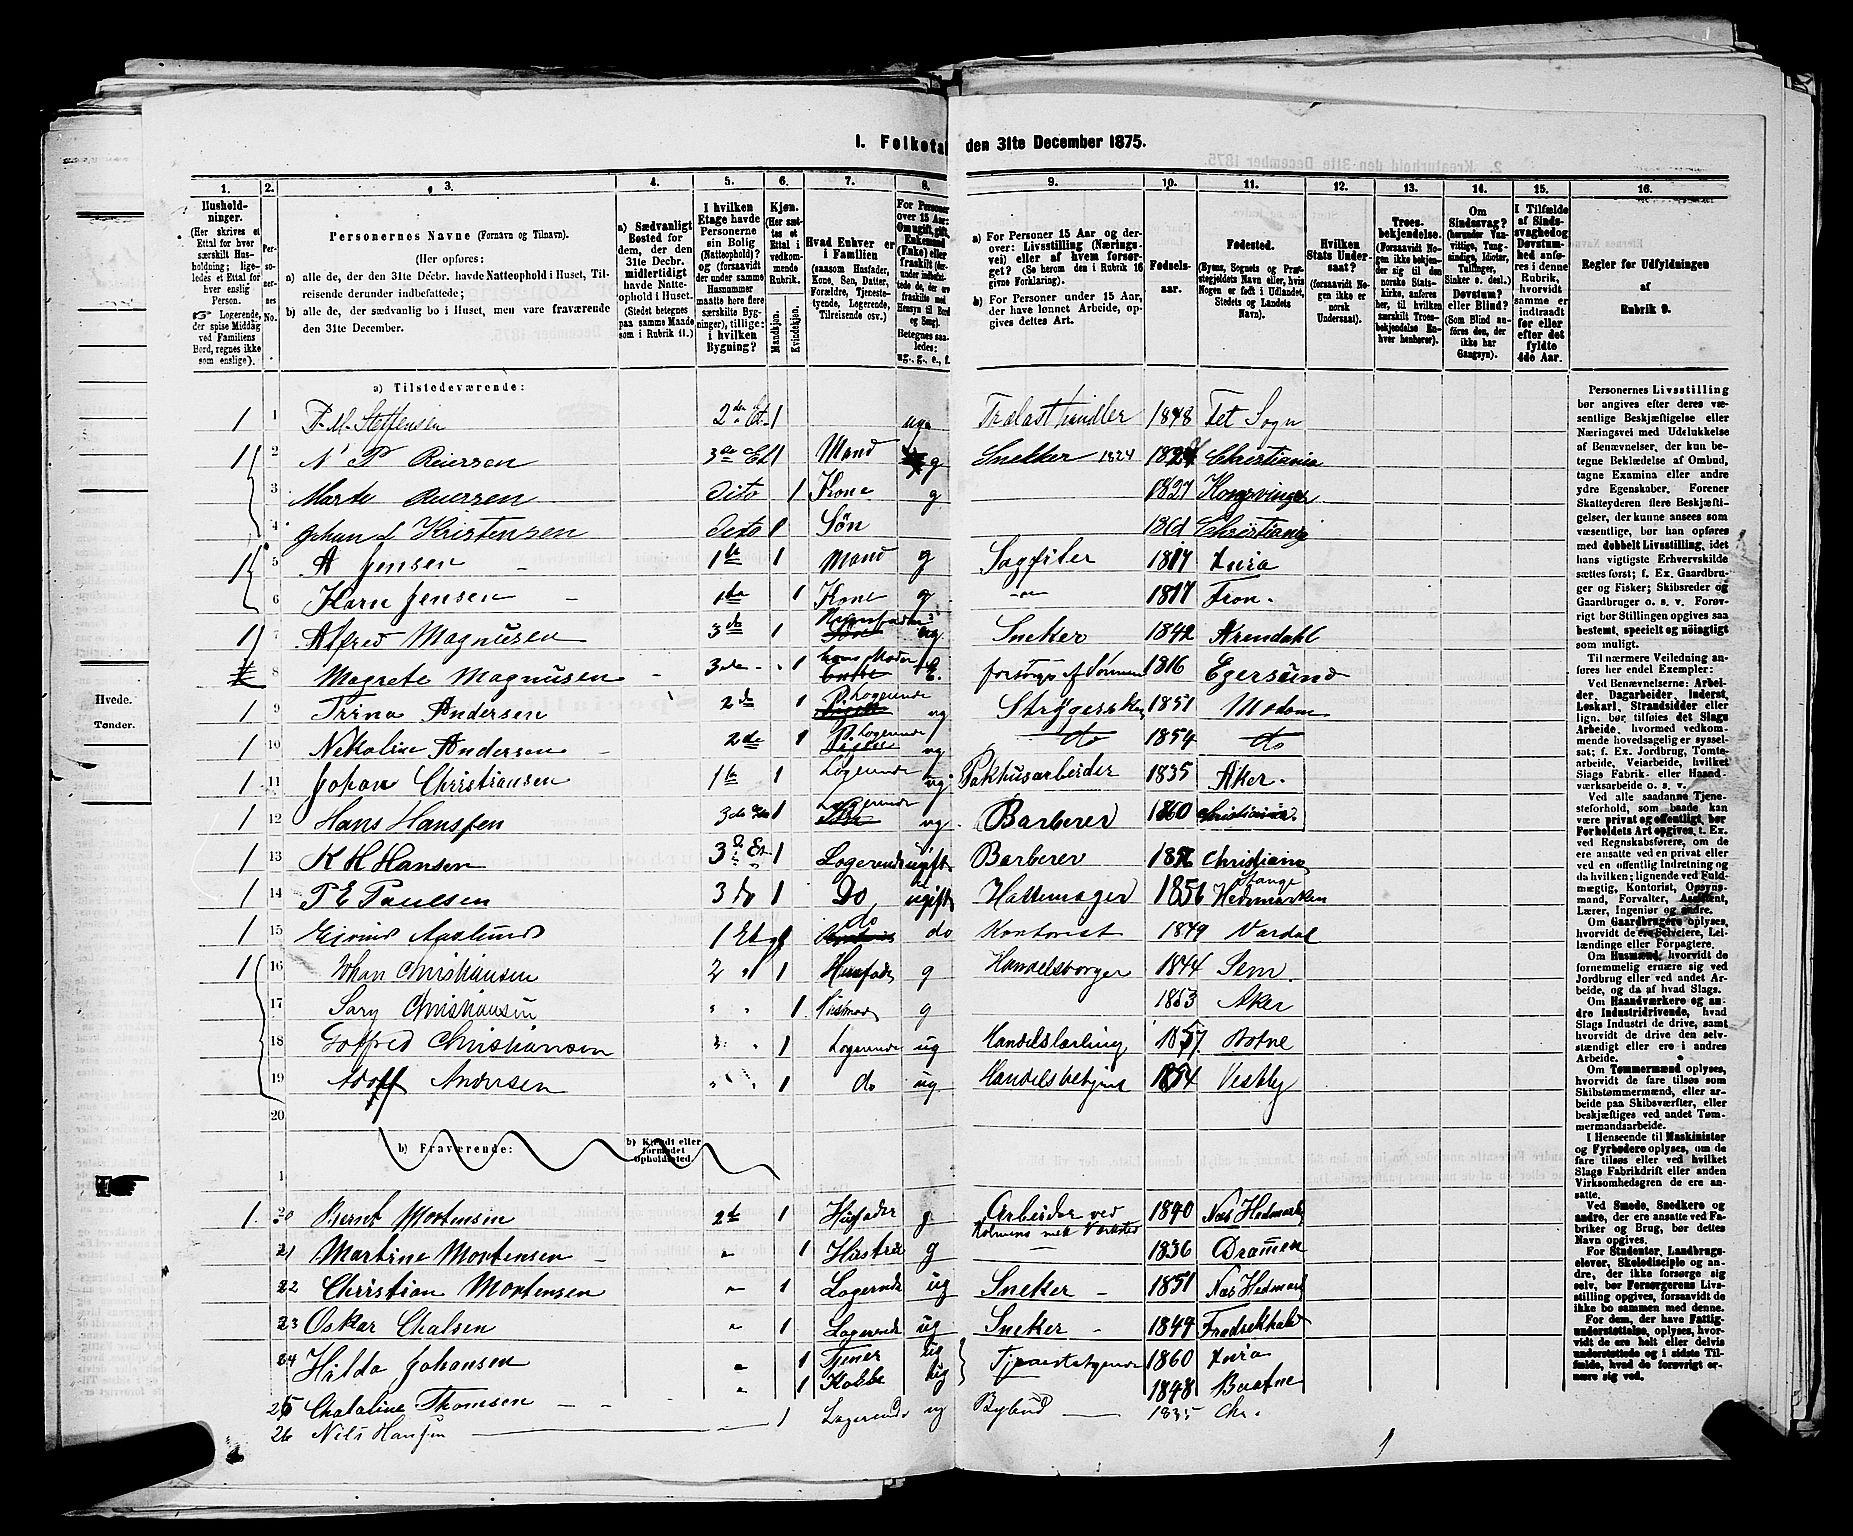 I. Folketal den 31te December 1875.
1. 2. 3. 4. 5. 6. 7. 8. 9. 10. 11. 12. 13. 14. 15. 16.
Hushold-
ninger.
(Her skrives et
Ettal for hver
særskilt Hus-
holdning; lige-
ledes et Ettal
for hver
enslig
Person.
Logerende,
der spise Middag
ved Familiens
Bord, regnes ikke
som enslige).
Per-
so-
ner-
nes
No.
Personernes Navne (Fornavn og Tilnavn).
(Her opføres:
a) alle de, der den 31te Decbr. havde Natteophold i Huset, Til-
reisende derunder indbefattede;
b) alle de, der sædvanlig bo i Huset, men vare fraværende
den 31te December.
a) Sædvanligt
Bosted for
dem, der den
31te Decbr.
midlertidigt
havde Natte-
ophold i Huset.
(Stedet betegnes
paa samme Maade
som i Rubrik 11.)
I hvilken
Etage havde
Personerne
sin Bolig
(Natteophold)?
og (forsaavidt
der under samme
Husnummer
maatte høre flere
særskilte Byg-
ninger), tillige:
i hvilken
Bygning?
Kjøn.
(Her sæt-
tes et
Ettal i
vedkom-
mende
Rubrik.
Mandkjøn.
Kvindekjøn.
Hvad Enhver er
i Familien
(saasom Husfader,
Kone, Søn, Datter,
Forældre, Tjeneste-
tyende, Logerende,
Tilreisende osv.)
For Personer
over 15 Aar:
Om ugift, gift,
Enkemand
(Enke) eller
fraskilt
Betegnes saa-
ledes:
ug., g., e., f.
a) For Personer 15 Aar og der-
over: Livsstilling (Nærings-
vei) eller af hvem forsør-
get? (Se herom den i Rubrik 16
givne Forklaring).
b) For Personer under 15 Aar,
der have lønnet Arbeide, op-
gives dettes Art.
Fødsels-
aar.
Fødested.
(Byens, Sognets og Præ-
stegjeldets Navn eller, hvis
Nogen er født i Udlandet,
Stedets og Landets
Navn).
Hvilken
Stats Under-
saat?
(forsaavidt No-
gen ikke er
norsk
Undersaat).
Troes-
bekjendelse.
(Forsaavidt No-
gen ikke bekjen-
der sig til den
norske Stats-
kirke, anføres
her, til hvilken
særskilt Troes-
bekjendelse En-
hver henhører).
Om
Sindssvag?
(herunder Van-
vittige, Tung-
sindige, Idioter,
Tullinger,
Sinker o. desl.)
Døvstum?
eller Blind?
(Som Blind an-
føres den, der
ikke har
Gangsyn).
I Tilfælde
af Sinds-
svaghed og
Døvstum-
hed anfø-
res i denne
Rubrik,
hvorvidt
samme er
indtraadt
før eller
efter det
fyldte
4de Aar.
Regler for Udfyldningen
af
Rubrik 9.
a) Tilstedeværende:
1 1 P. M. Steffensen 2den Et. 1 ug. Trælasthandler 1848 Fet Sogn
1 2 N. P. Reiersen 3de Et 1 Mand g Snekker 1824 Christiania
3 Marte Reiersen dito 1 Kone g 1827 Kongsvinger
4 Johan Kristensen dito 1 Søn 1861 Christiania
1 5 A Jensen 1te 1 Mand g 1817
6 Karn Jensen 1te 1 Kone g 1817 Fron.
1 7 Alfred Magnusen 3de 1 ug Sneker 1842 Arendahl
8 Magrete Magnusen 3de 1 hans Moder E. forsørges af Sønnen 1816 Egersund
1 9 Trina Andersen 2de 1 Logerende ug 1851 Modum
1 10 Nekoline Andersen 2de 1 Logerende ug do 1854 do
1 11 Johan Christiansen 1te 1 Logerende ug Pakhusarbeider 1835 Aker.
1 12 Hans Hansen 3de 1 Logerende ug. Barberer 1860 Christiania.
1 13 K H Hansen 3de Et 1 Logerende ugift Barberer Christiania
1 14 P E Paulsen 3 do 1 Do ugift Hattemager 1856 Stange Hedemarken
1 15 Ejvind Aaslund 1 Et 1 do do Kontorist 1849 Vardal
1 16 Johan Christiansen 2 " 1 Husfader g Handelsborger 1844 Sem.
17 Sary Christiansen " " 1 Husmor g 1853 Aker
18 Gotfred Christiansen " " 1 Logerende ug Handelslærling 1857. Botne
19 Adolf Andersen " " 1 do ug Handelsbetjent 1854 Vestby
20
b) Fraværende:
b) Kjendt eller
formodet
Opholdssted.
1
1. 20 Bernt Mortensen 2de 1 Husfader g. Arbeider ved 1840 Næs Hedemark
21 Martine Mortensen " 1 Hustru g 1836 Drammen
22 Christian Mortensen " 1 Logerende ug Sneker 1851 Næs Hedemark
23 Oskar Chalsen " 1 Logerende ug Sneker 1849 Fredrekhald
24 Hilda Johansen " 1 Tjener ug Tjenestetyende 1860
25 Chataline Thomsen " 1 Kokke ug 1848
26 Nils Hansen " 1 Logerende ug Bybud 1835 Chr.
Personernes Livsstilling
bør angives efter deres væ-
sentlige Beskjæftigelse eller
Næringsvei med Udelukkelse
af Benævnelser, der kun be-
tegne Beklædelse af Ombud,
tagne Examina eller andre
ydre Egenskaber. Forener
Skatteyderen flere Beskjæfti-
gelser, der kunne ansees som
væsentlige, bør han opføres
med dobbelt Livsstilling, idet
hans vigtigste Erhvervskilde
sættes først; f. Ex. Gaardbru-
ger og Fisker; Skibsreder og
Gaardbruger o. s. v. Forøv-
rigt bør Stillingen opgives saa
bestemt, specielt og nøiagtigt
som muligt.
Til nærmere Veiledning an-
føres her endel Exempler:
Ved Benævnelserne: Arbei-
der, Dagarbeider, Inderst,
Løskarl, Strandsidder eller
lign. bør tilføies det Slags
Arbeide, hvormed vedkom-
mende hovedsagelig er syssel-
sat; f. Ex. Jordbrug, Tomte-
arbeide, Veiarbeide, hvilket
Slags Fabrik- eller Haand-
værksarbeide o. s. v.
Ved alle saadanne Tjene-
steforhold, som baade kan
være private og offentlige, bør
Forholdets Art opgives, t. Ex.
ved Regnskabsførere, om de
ere ansatte ved en privat eller
en offentlig Indretning og
da hvilken; lignende ved Fuld-
mægtig, Kontorist, Opsyns-
mand, Forvalter, Assistent,
Lærer, Ingeniør og andre.
Om Gaardbrugere oplyses,
hvorvidt de ere Selveiere, Lei-
lændinge eller Forpagtere.
Om Husmænd, hvorvidt de
fornemmelig ernære sig ved
Jordbrug eller ved andet Ar-
beide, og da af hvad Slags.
Om Haandværkere og an-
dre Industridrivende, hvad
Slags Industri de drive, samt
hvorvidt de drive den selv-
stændigt eller ere i andres
Arbeide.
Om Tømmermænd oplyses,
hvorvidt de fare tilsøs som
Skibstømmermænd, eller ar-
beide paa Skibsværfter, eller
beskjæftiges ved andet Tøm-
mermandsarbeide.
I Henseende til Maskinister
og Fyrbødere oplyses, om de
fare tilsøs eller ved hvilket
Slags Fabrikdrift eller anden
Virksomhedsgren de ere an-
satte.
Ved Smede, Snedkere og
andre, der ere ansatte ved Fa-
briker og Brug, bør dettes
Navn opgives.
For Studenter, Landbrugs-
elever, Skoledisciple og an-
dre, der ikke forsørge sig
selv, bør Forsørgerens Livs-
stilling opgives, forsaavidt de
ikke bo sammen med denne.
For dem, der have Fattig-
understøttelse, oplyses, hvor-
vidt de ere helt eller delvis
understøttede og i sidste Til-
fælde, hvad de forøvrigt er-
nære sig ved.
Hvede.
Tønder.